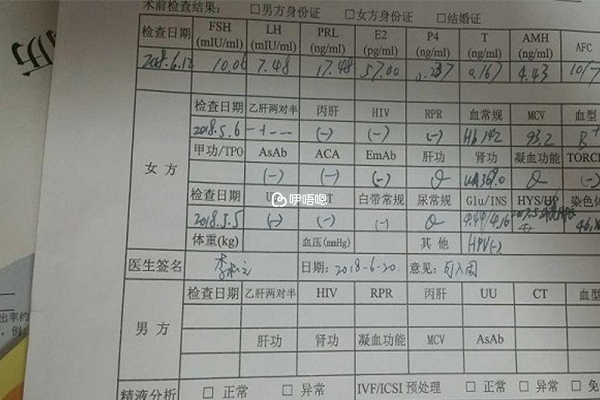 术前检查结果： □男方身份证 □女方身份证 □结婚证
检查日期 FSH (mIU/ml) LH (mIU/ml) PRL (ng/ml) E2 (pg/ml) P4 (ng/ml) T (ng/ml) AMH (ng/ml) AFC
2018.6.12 10.06 7.48 17.48 57.00 0.237 0.167 4.43 10/7
检查日期 乙肝两对半 丙肝 HIV RPR 血常规 MCV 血型
2018.5.6 -+--- (-) (-) (-) Hb 142 93.2 B+
女方
甲功/TPO AsAb ACA EmAb 肝功 肾功 凝血功能 TORCH
(-) (-) (-)
检查日期 白带常规 尿常规 Glu/INS HYS/UP 染色体
2018.5.5 (-) (-) (-) 4.44/4.16
体重(kg) 血压(mmHg) 其他 HPV(-)
咿唔嗯
医生签名 日期：2018-6-20. 意见：可入周
检查日期 乙肝两对半 HIV RPR 丙肝 UU CT 血型
男方
肝功 肾功 凝血功能 MCV AsAb
精液分析 □ 正常 □ 异常 IVF/ICSI 预处理 □ 正常 □ 异常 □ 免